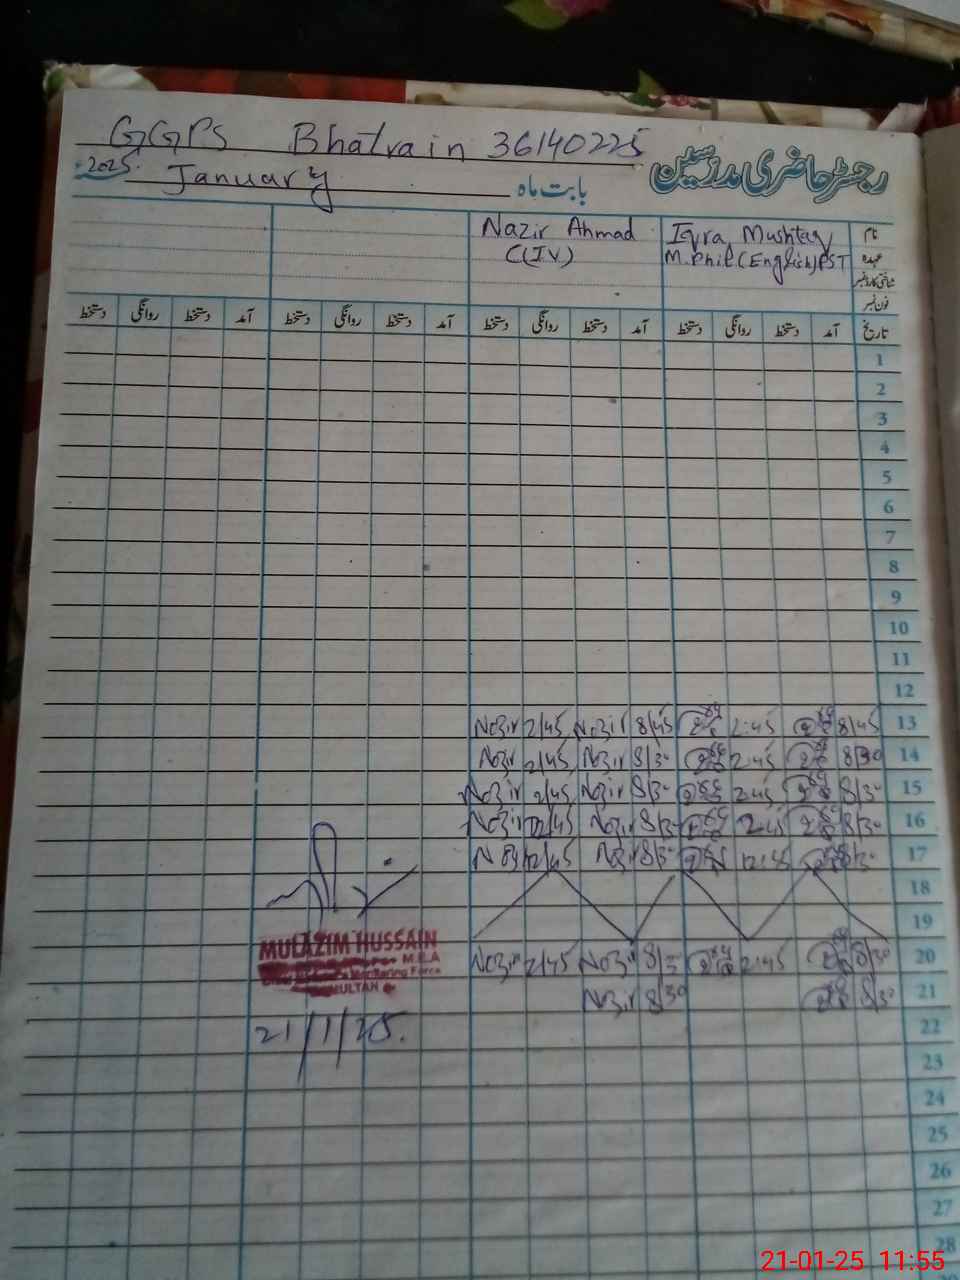 GGPS Bhatrain 36140225
رجسٹر حاضری مدرسین
2025. January بابت ماہ
نام Iqra Mushtaq Nazir Ahmad
عہدہ M.Phil (English) PST C(IV)
شناختی کارڈ نمبر
فون نمبر
تاریخ آمد دستخط روانگی دستخط آمد دستخط روانگی دستخط آمد دستخط روانگی دستخط آمد دستخط روانگی دستخط
1
2
3
4
5
6
7
8
9
10
11
12
Nazir 2/45 Nazir 8/45 2:45 8/45 13
Nazir 2/45 Nazir 8/30 2:45 8/30 14
Nazir 2/45 Nazir 8/30 2:45 8/30 15
Nazir 2/45 Nazir 8/30 2:45 8/30 16
12/45 Nazir 8/30 12:45 8/30 17
18
19
Nazir 2/45 Nazir 8/30 2:45 8/30 20
Nazir 8/30 8/30 21
MULAZIM HUSSAIN
M.E.A
Monitoring Force
MULTAN
21/1/25.
22
23
24
25
26
27
28
21-01-25 11:55